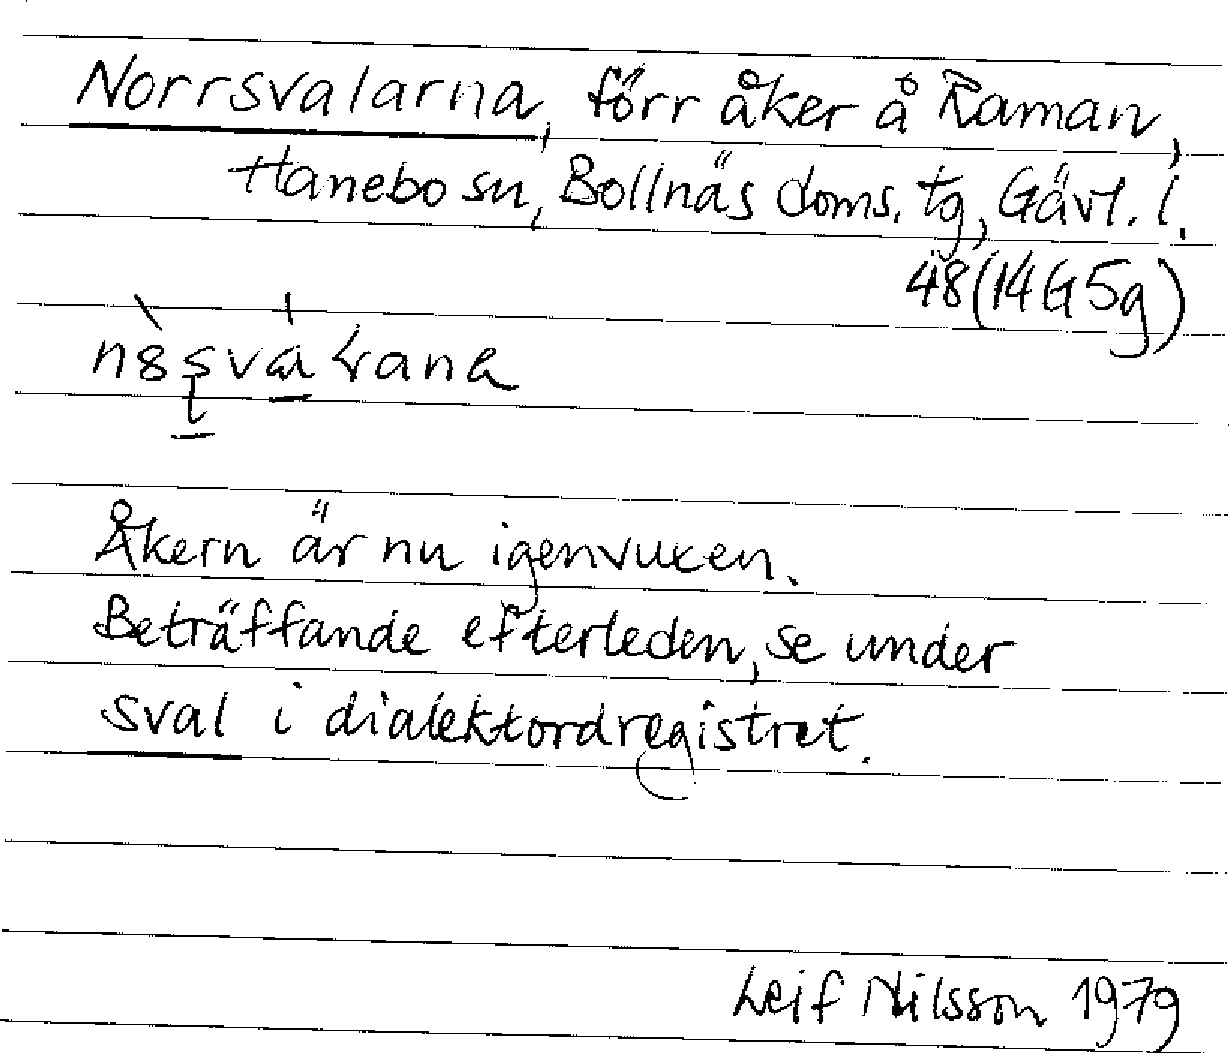 Norrsvalarna, förr åker å Raman,
Hanebo sn, Bollnäs doms. tg, Gävl. l.
48 (14G5g)
Åkern är nu igenvuxen.
Beträffande efterleden, se under
sval i dialektordregistret.
Leif Nilsson 1979